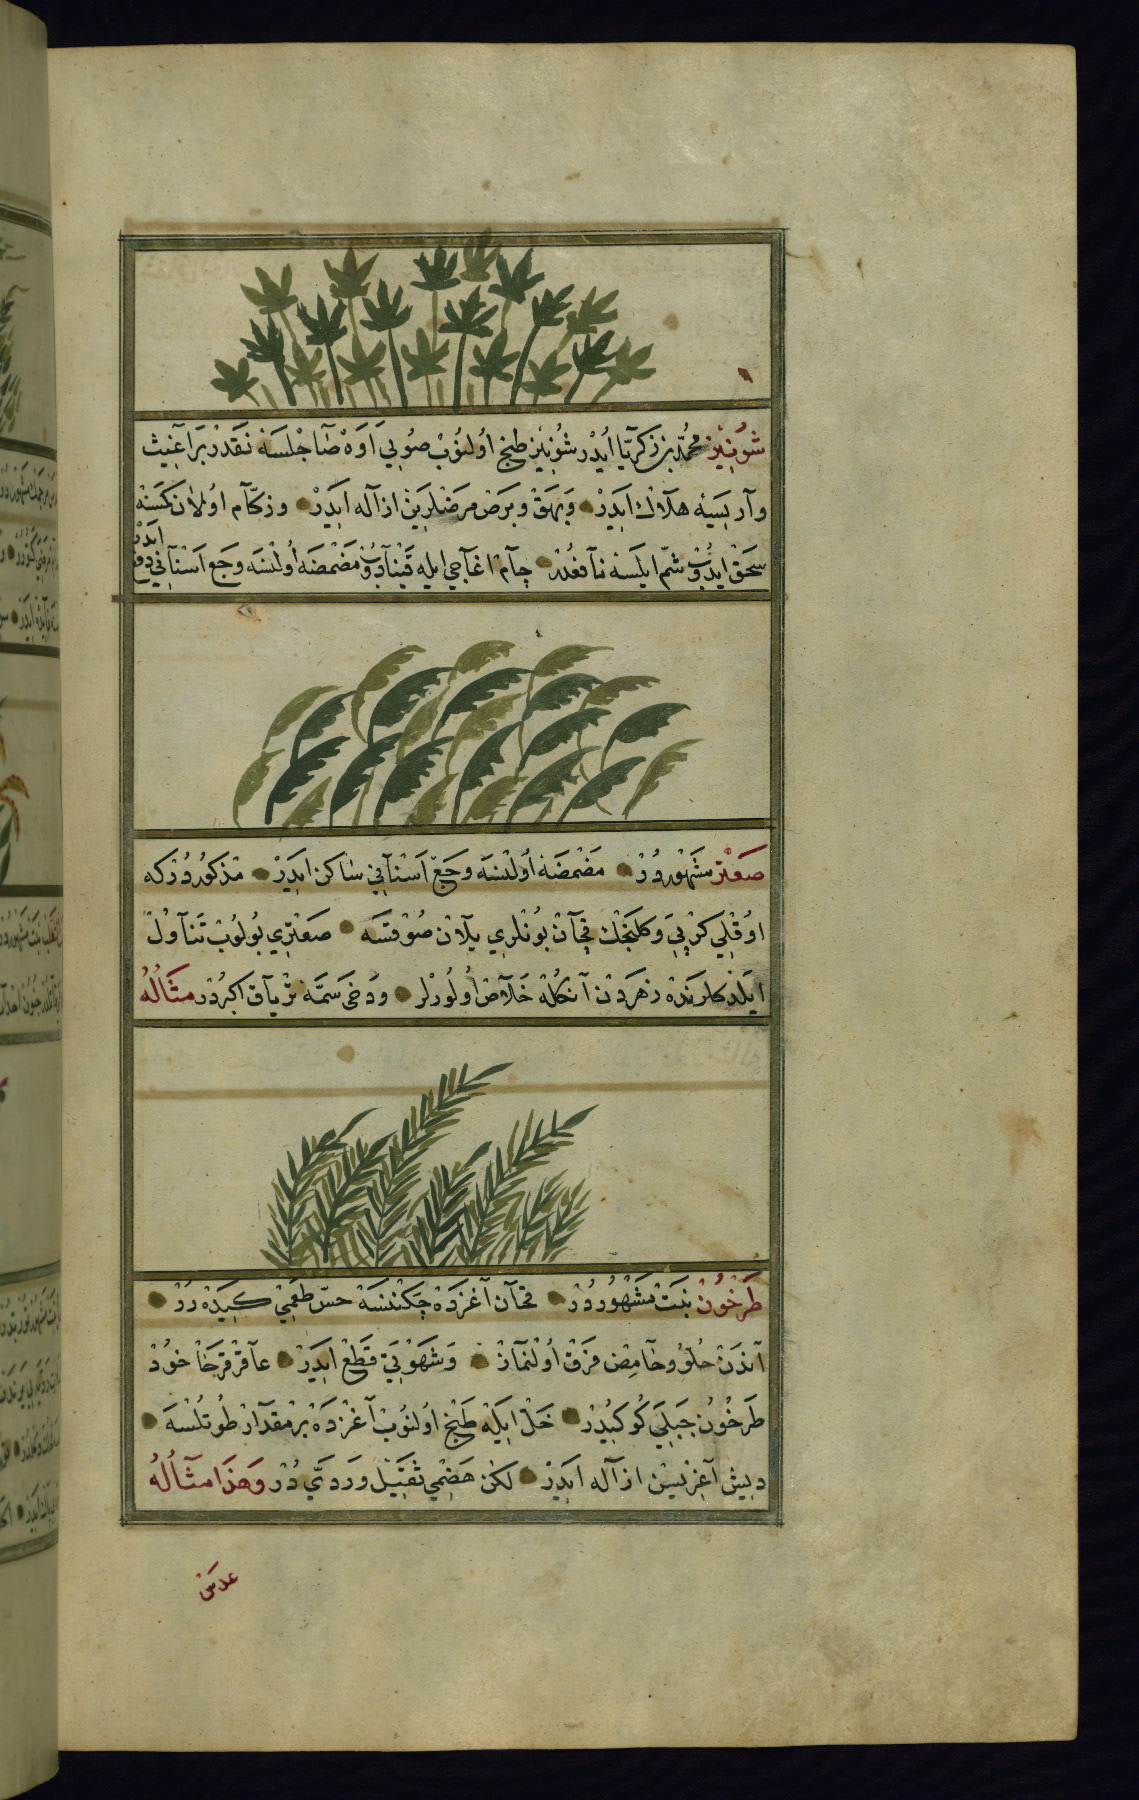 شونیز محمد بن زكریا ایدر شونیز طبخ اولنوب صویی اوه صاجلسه نقدر براغیث
وار یسه هلاك ایدر وبهق وبرص مرضلرین ازاله ایدر وزكام اولان كسنه
سحق ایدوب شم ایلسه نافعدر چام اغاجی ایله قینادوب مضمضه اولنسه وجع اسنانی دفع
ایدر
صعتر مشهوردر مضمضه اولنسه وجع اسنانی ساكن ایدر مذكوردركه
اوقلی كرپی وكلنجك قچان بونلری یلان صوقسه صعتری بولوب تناول
ایلدكلرنده زهردن آنكله خلاص اولورلر ودخی سمه تریاق اكبردر مثاله
طرخون نبت مشهوردر قچان آغزده چكننسه حس طعمی كیدرر
آندن حلو وحامض فرق اولنماز وشهوتی قطع ایدر عاقرقرحا خود
طرخون جبلی كوكیدر خل ایله طبخ اولنوب آغزده بر مقدار طوتلسه
دیش آغریسن ازاله ایدر لكن هضمی ثقیل وردی در وهذا مثاله
عدس